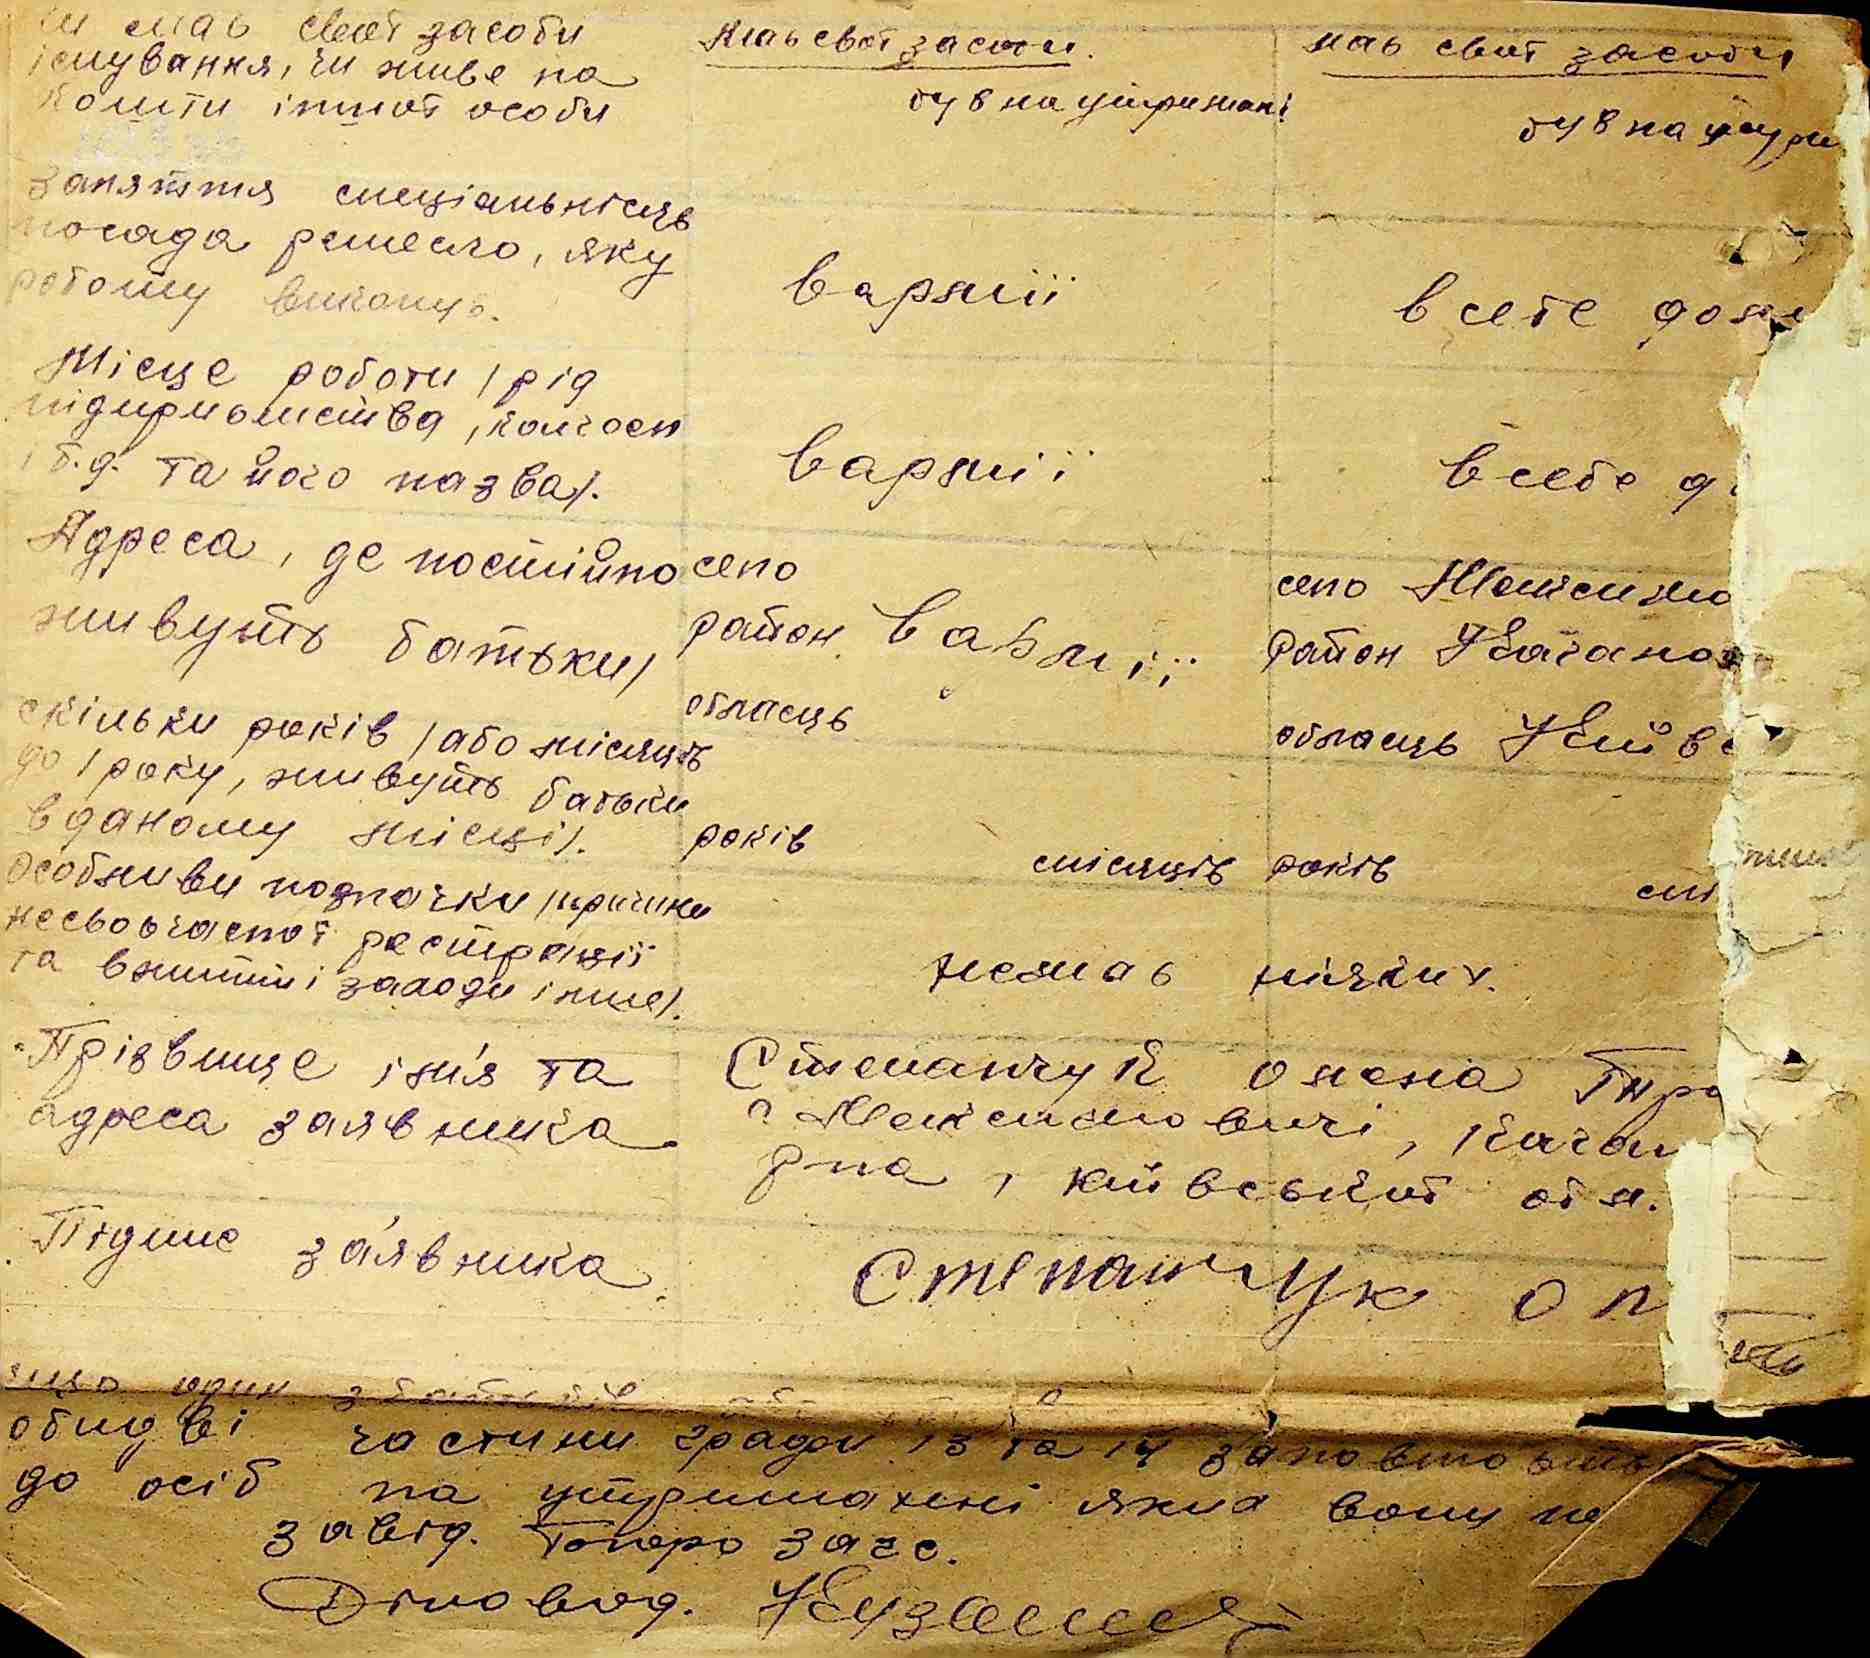 має свої засоби
існування, чи живе на
кошти іншої особи
має свої засоби.
був на утриманні
має свої засоби
був на утри
заняття спеціальність
посада ремесло, яку
роботу виконує.
в армії
в себе дома
Місце роботи /рід
підприємства, колгосп
і т.д. та його назва/.
в армії
в себе д
Адреса, де постійно
живуть батьки/
скільки років /або місяців
до 1 року, живуть батьки
в даному місці/.
село
район в армії
область
років місяців
село Максимо
район Кагано
область Київс
років мі
Особливи позначки /причини
несвоєчасної реєстрації
та вжитті заходи інше/.
немає ніяких.
Прізвище ім'я та
адреса заявника
Степанчук Олена Пра
с Максимовичі, Каган
р-на, Київської обл.
Підпис заявника.
Степанчук О
один з батьків
обидві частини гради 13 та 14 заповнюють
до осіб на утриманні яких вони не
завід. Топоро загс.
Діловод.